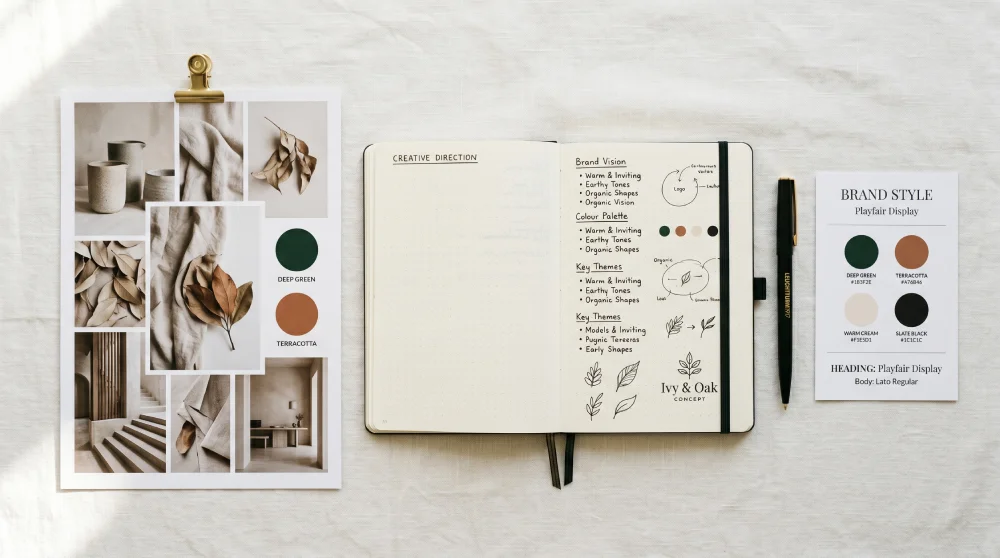 DEEP GREEN
TERRACOTTA
CREATIVE DIRECTION
Brand Vision
• Warm & Inviting
• Earthy Tones
• Organic Shapes
• Organic Vision
Logo
Colour Palette
• Warm & Inviting
• Earthy Tones
• Organic Shapes
Key Themes
• Warm & Inviting
• Earthy Tones
• Organic Shapes
Organic
Leaf
Key Themes
• Models & Inviting
• Pugnic Tereeras
• Early Shapes
Ivy & Oak
CONCEPT
BRAND STYLE
Playfair Display
DEEP GREEN
TERRACOTTA
#A76B46
WARM CREAM
SLATE BLACK
#1C1C1C
HEADING: Playfair Display
Body: Lato Regular